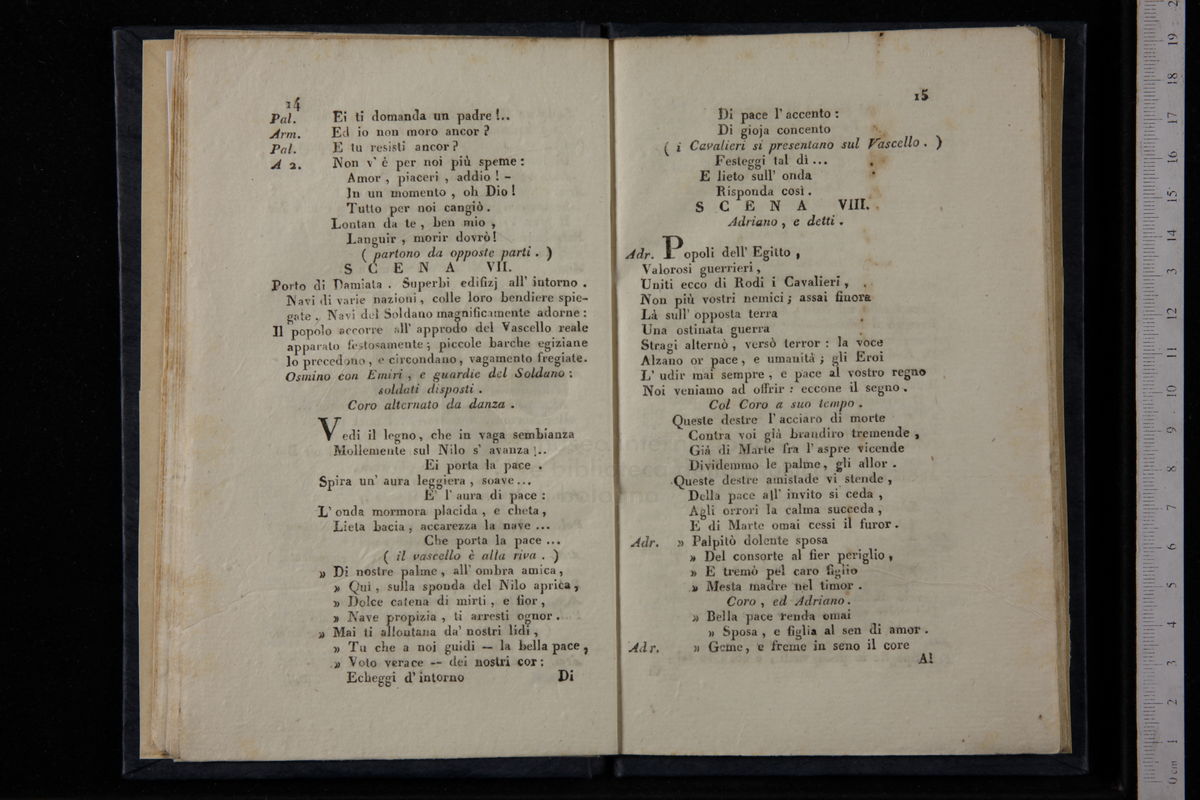 14
Pal. Ei ti domanda un padre!..
Arm. Ed io non moro ancor?
Pal. E tu resisti ancor?
A 2. Non v' è per noi più speme:
Amor, piaceri, addio! -
In un momento, oh Dio!
Tutto per noi cangiò.
Lontan da te, ben mio,
Languir, morir dovrò!
( partono da opposte parti. )
SCENA VII.
Porto di Damiata. Superbi edifizj all' intorno.
Navi di varie nazioni, colle loro bendiere spie-
gate. Navi del Soldano magnificamente adorne:
Il popolo accorre all' approdo del Vascello reale
apparato festosamente; piccole barche egiziane
lo precedono, e circondano, vagamento fregiate.
Osmino con Emiri, e guardie del Soldano:
soldati disposti.
Coro alternato da danza.
Vedi il legno, che in vaga sembianza
Mollemente sul Nilo s' avanza!..
Ei porta la pace.
Spira un' aura leggiera, soave...
E' l' aura di pace:
L' onda mormora placida, e cheta,
Lieta bacia, accarezza la nave ...
Che porta la pace ...
( il vascello è alla riva. )
» Di nostre palme, all' ombra amica,
» Qui, sulla sponda del Nilo aprica,
» Dolce catena di mirti, e fior,
» Nave propizia, ti arresti ognor.
» Mai ti allontana da' nostri lidi,
» Tu che a noi guidi — la bella pace,
» Voto verace — dei nostri cor:
Echeggi d' intorno
Di
15
Di pace l' accento:
Di gioja concento
( i Cavalieri si presentano sul Vascello. )
Festeggi tal dì ...
E lieto sull' onda
Risponda così.
SCENA VIII.
Adriano, e detti.
Adr. Popoli dell' Egitto,
Valorosi guerrieri,
Uniti ecco di Rodi i Cavalieri,
Non più vostri nemici; assai finora
Là sull' opposta terra
Una ostinata guerra
Stragi alternò, versò terror: la voce
Alzano or pace, e umanità; gli Eroi
L' udir mai sempre, e pace al vostro regno
Noi veniamo ad offrir: eccone il segno.
Col Coro a suo tempo.
Queste destre l' acciaro di morte
Contra voi già brandiro tremende,
Già di Marte fra l' aspre vicende
Dividemmo le palme, gli allor.
Queste destre amistade vi stende,
Della pace all' invito si ceda,
Agli orrori la calma succeda,
E di Marte omai cessi il furor.
Adr. » Palpitò dolente sposa
» Del consorte al fier periglio,
» E tremò pel caro figlio
» Mesta madre nel timor.
Coro, ed Adriano.
» Bella pace renda omai
» Sposa, e figlia al sen di amor.
Adr. » Geme, e freme in seno il core
Al